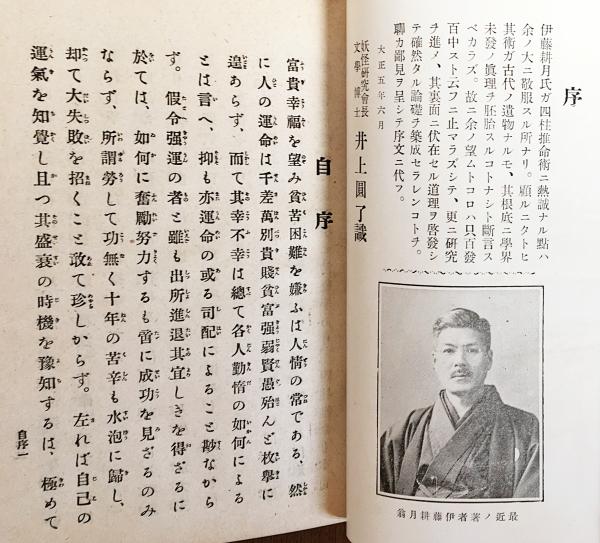 序
伊藤耕月氏ガ四柱推命術ニ熱誠ナル點ハ
余ノ大ニ敬服スル所ナリ。顧ルニタトヒ
其術ガ古代ノ遺物ナルモ、其根底ニ學界
未發ノ眞理ヲ胚胎スルコトナシト斷言ス
ベカラズ。故ニ余ノ望ムトコロハ只百發
百中スト云フニ止マラズシテ、更ニ研究
ヲ進メ、其裏面ニ伏在セル道理ヲ啓發シ
テ確然タル論礎ヲ築成セラレンコトヲ。
聊カ鄙見ヲ呈シテ序文ニ代フ。
大正五年六月
妖怪硏究會長
文學博士
井上圓了識
最近ノ著者伊藤耕月翁
自序
富貴幸福を望み貧苦困難を嫌ふは人情の常である、然
に人の運命は千差萬別貴賤貧富强弱賢愚殆んど枚擧に
遑あらず、而て其幸不幸は總て各人勤惰の如何による
とは言へ、抑も亦運命の或る司配によること尠なから
ず。假令强運の者と雖も出所進退其宜しきを得ざるに
於ては、如何に奮勵努力するも啻に成功を見ざるのみ
ならず、所謂勞して功無く十年の苦辛も水泡に歸し、
却て大失敗を招くこと敢て珍しからず。左れば自己の
運氣を知覺し且つ其盛衰の時機を豫知するは、極めて
自序一